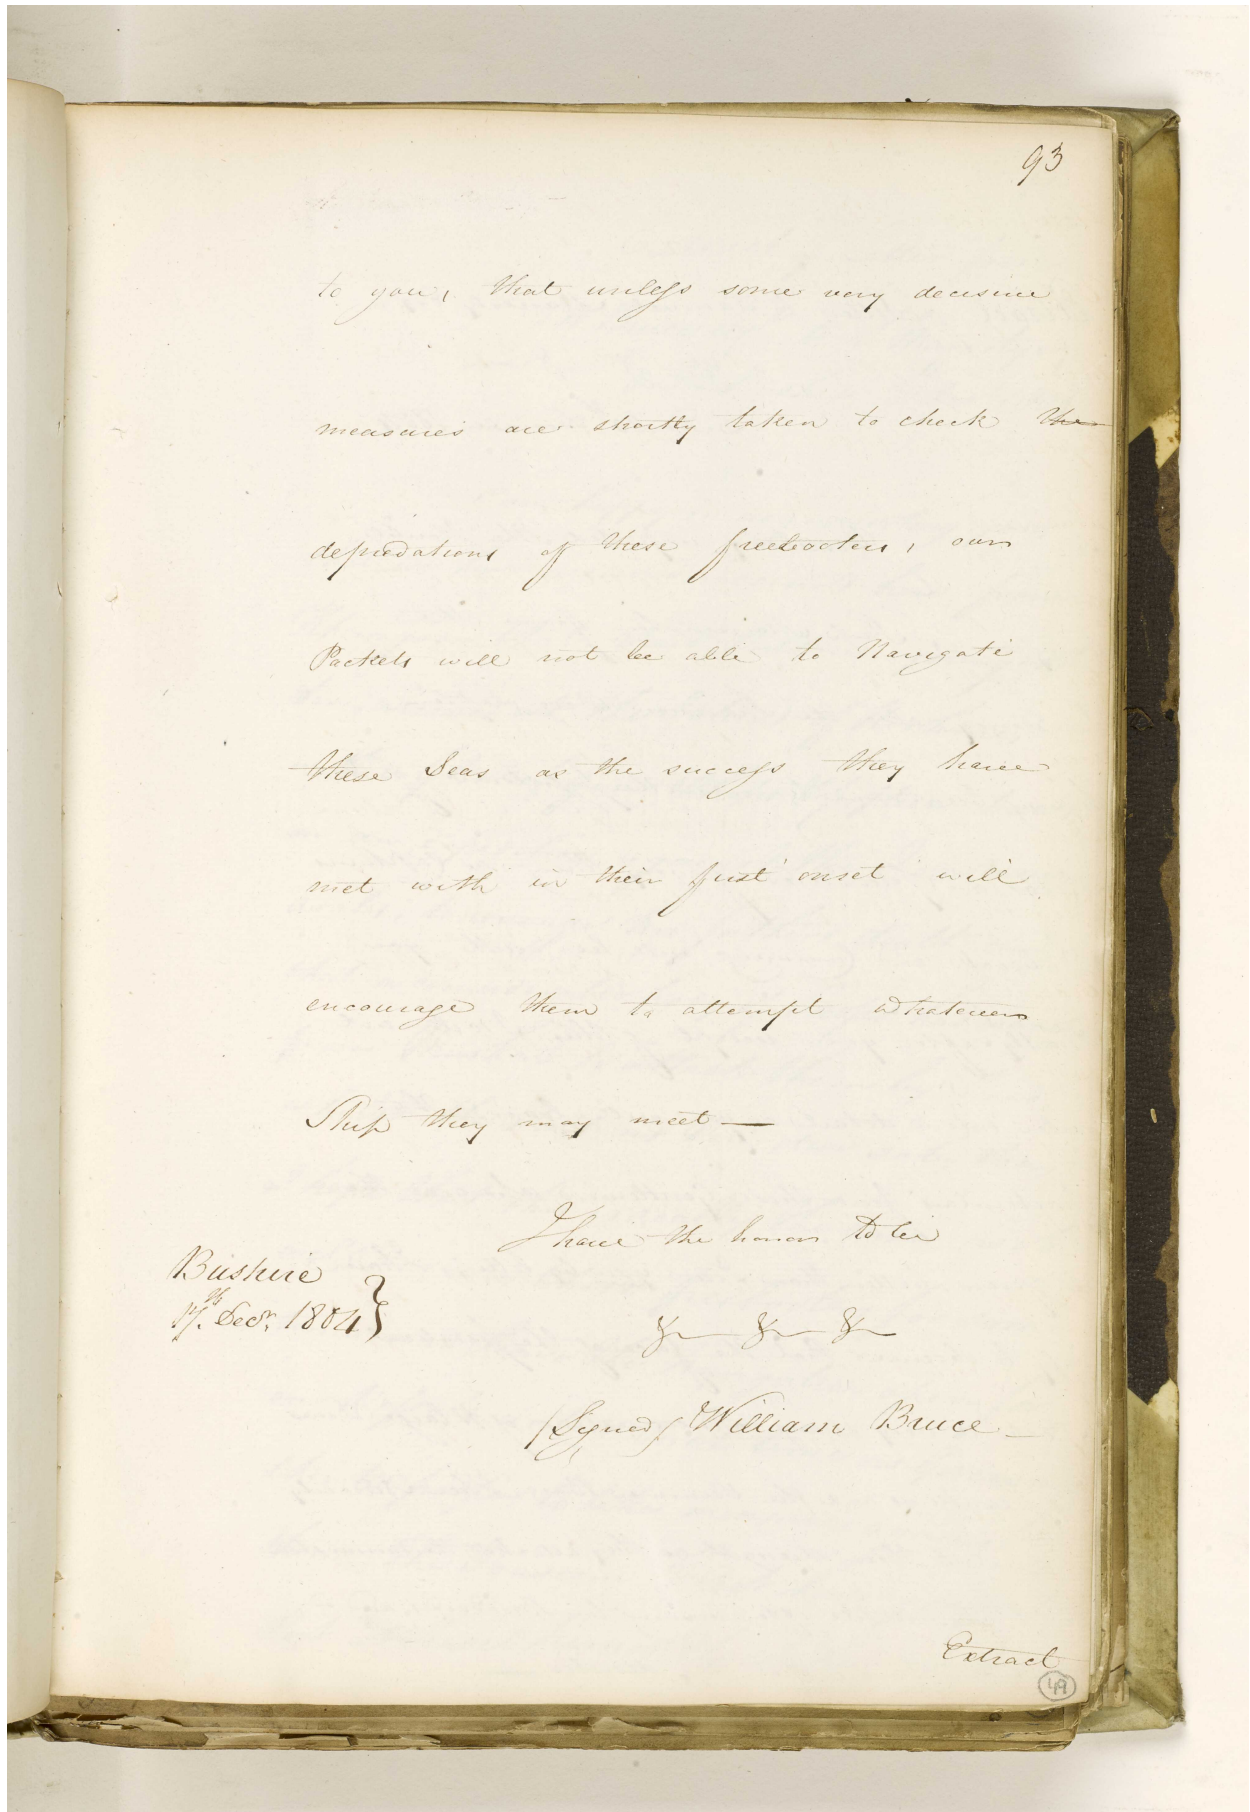 93
to you, that unless some very decisive
measures are shortly taken to check the
depredations of these freebooters, our
Packets will not be able to Navigate
these Seas as the success they have
met with in their first onset will
encourage them to attempt whatever
Ship they may meet —
I have the honor to be
Bushire
17th. Decr. 1804
&— &— &—
(Signed) William Bruce —
Extract
49